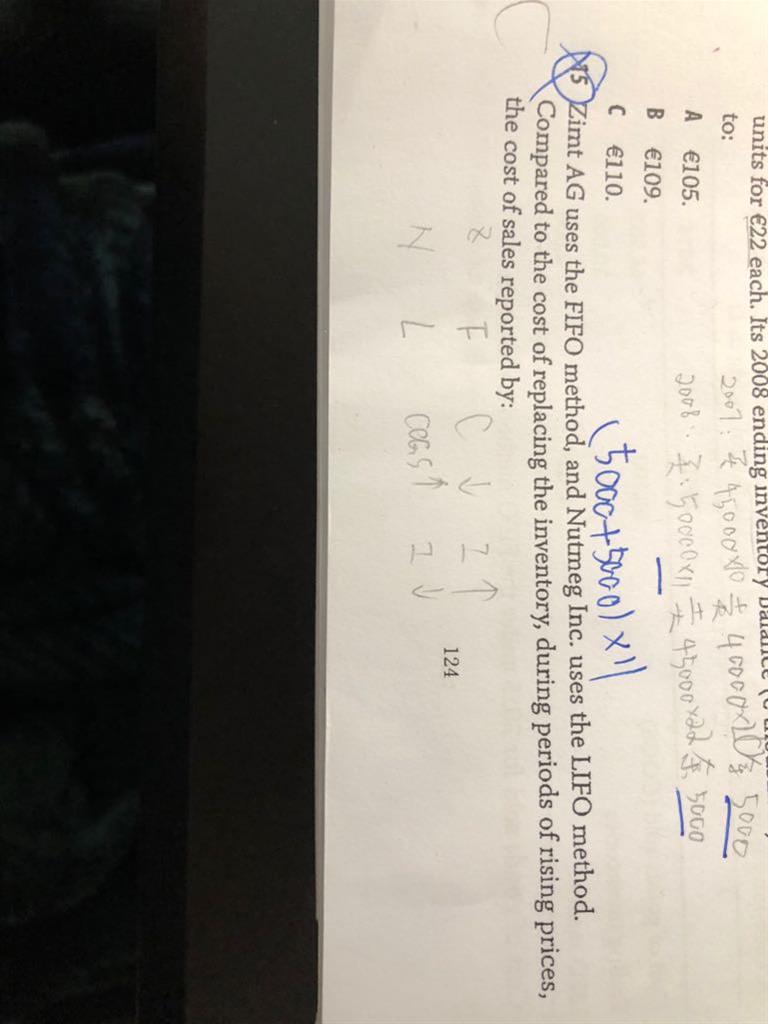 units for €22 each. Its 2008 ending inventory balance
to:
2007: 买 45000×10 卖 40000×20 余 5000
A €105.
2008: 买: 50000×11 卖 45000×22 余 5000
B €109.
C €110.
(5000+5000)×11
15 Zimt AG uses the FIFO method, and Nutmeg Inc. uses the LIFO method.
Compared to the cost of replacing the inventory, during periods of rising prices,
the cost of sales reported by:
Z F C ↓ I ↑
N L COGS ↑ I ↓
124